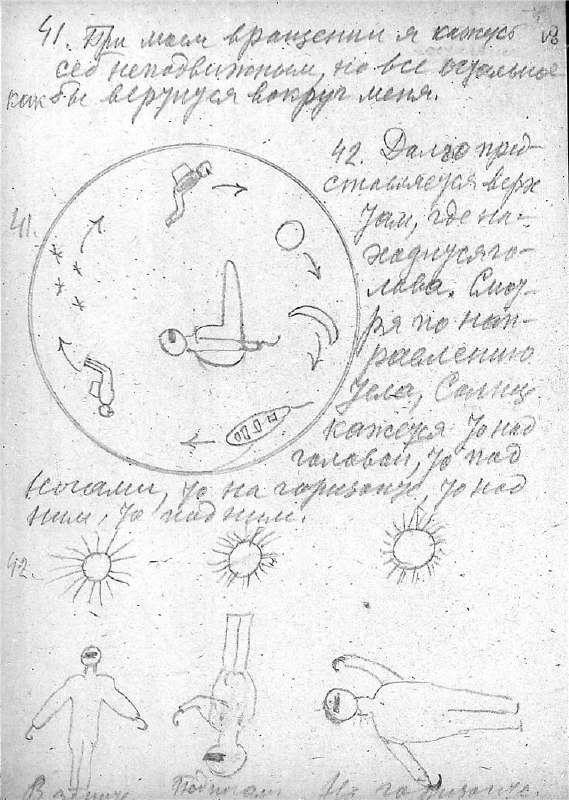 41. При моем вращении я кажусь
себе неподвижным, но все остальное
как бы вертится вокруг меня.
42. Долго пред-
ставляется верх
там, где на-
ходится го-
лова. Смот-
ря по нап-
равлению
тела, Солнце
кажется то над
головой, то под
ногами, то на горизонте, то над
ним, то под ним.
41.
42.
В зените. Под ногами. На горизонте.